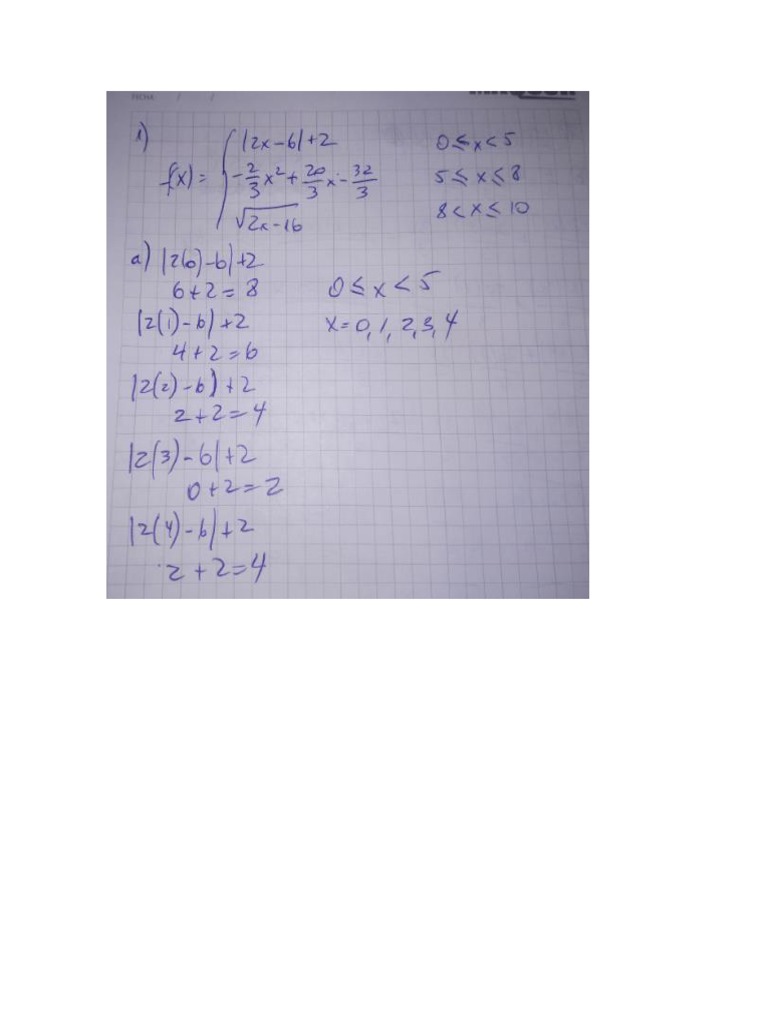 FECHA: / /
1)
|2x-6|+2 0≤x<5
f(x)= { -2/3 x² + 20/3 x - 32/3 5≤x≤8
√2x-16 8<x≤10
a) |2(0)-6|+2
6+2=8 0≤x<5
|2(1)-6|+2 x=0,1,2,3,4
4+2=6
|2(2)-6)+2
2+2=4
|2(3)-6|+2
0+2=2
|2(4)-6|+2
2+2=4